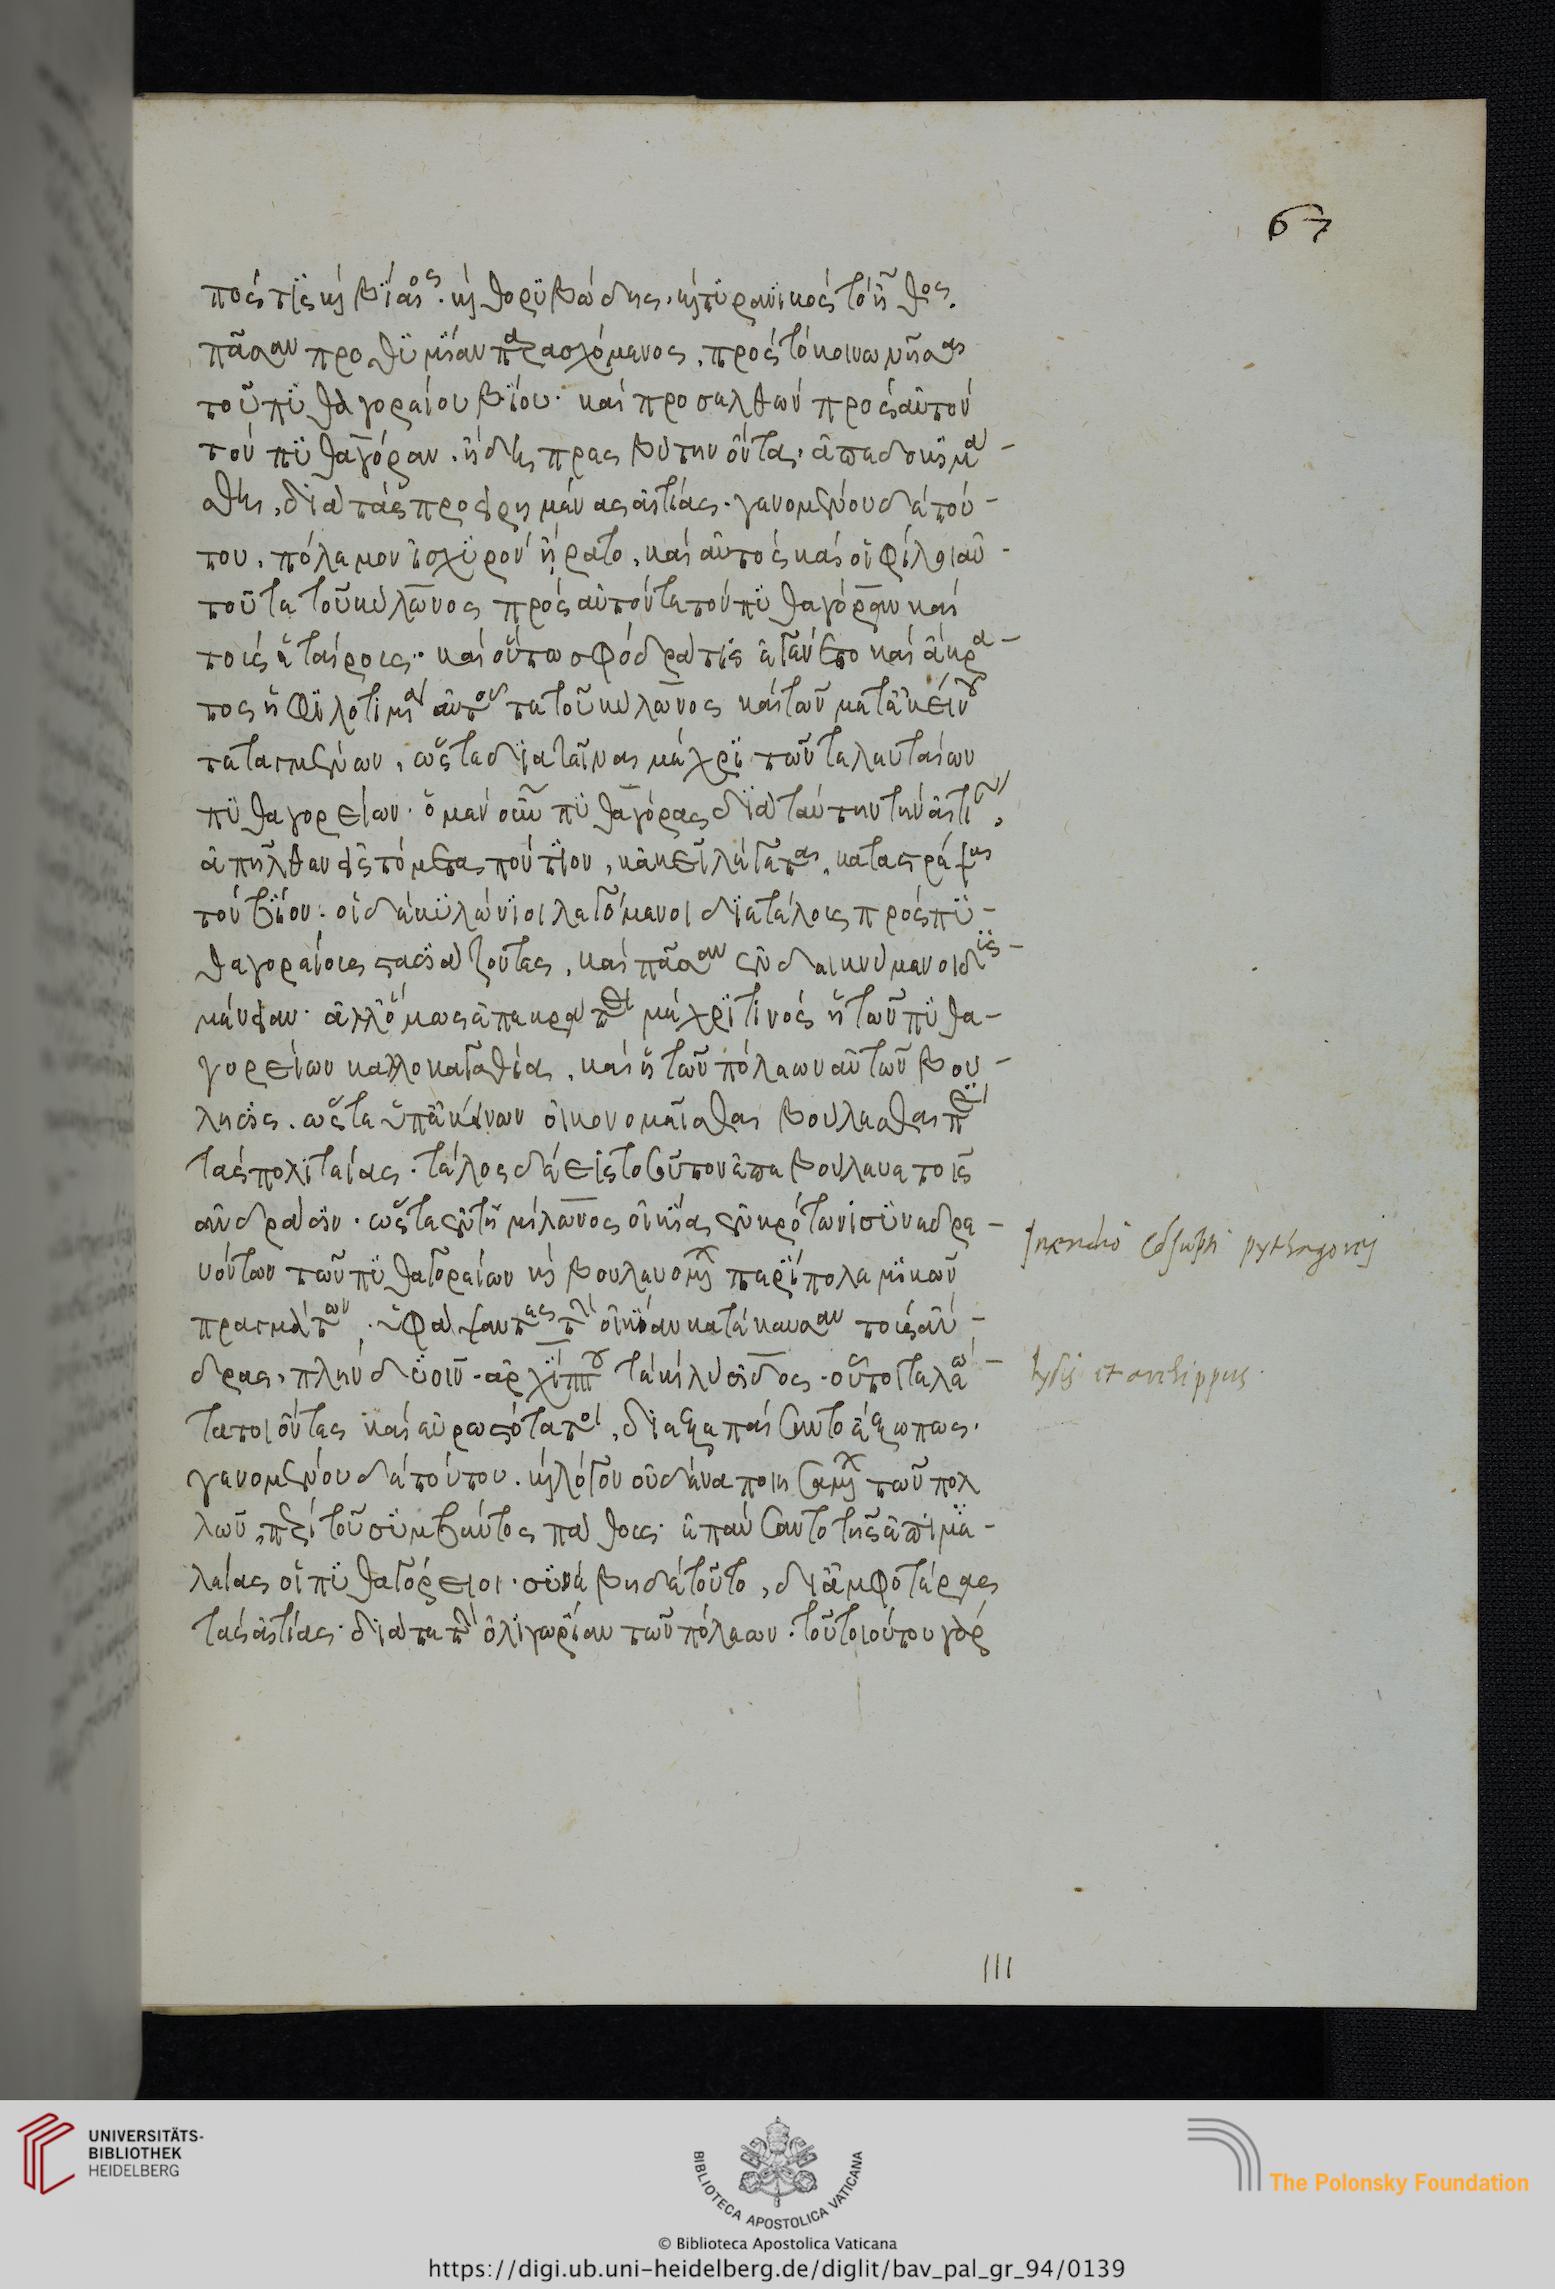 67
πός τις καὶ βίαιος· καὶ θορυβώδης· καὶ τυραννικὸς τὸ ἦθος.
πᾶσαν προθυμίαν παρασχόμενος, πρὸς τὸ κοινωνῆσαι
τοῦ πυθαγορείου βίου· καὶ προσελθὼν πρὸς αὐτὸν
τὸν πυθαγόραν· ἤδη πρεσβύτην ὄντα, ἀπεδοκιμά-
σθη, διὰ τὰς προειρημένας αἰτίας· γενομένου δὲ τού-
του, πόλεμον ἰσχυρὸν ἤρατο, καὶ αὐτὸς καὶ οἱ φίλοι αὐ-
τοῦ τε τοῦ κύλωνος πρὸς αὐτόν τε τὸν πυθαγόραν καὶ
τοὺς ἑταίρους· καὶ οὕτω σφόδρα τις ἐγένετο καὶ ἄκρα-
τος ἡ φιλοτιμία αὐτοῦ τε τοῦ κύλωνος καὶ τῶν μετ' ἐκείνου
τεταγμένων, ὥστε διατεῖναι μέχρι τῶν τελευταίων
πυθαγορείων· ὁ μὲν οὖν πυθαγόρας διὰ ταύτην τὴν αἰτίαν,
ἀπῆλθεν εἰς τὸ μεταπόντιον, κἀκεῖ λέγεται, καταστρέψαι
τὸν βίον· οἱ δὲ κυλώνιοι λεγόμενοι διετέλουν πρὸς πυ-
θαγορείους στασιάζοντες, καὶ πᾶσαν ἐνδεικνύμενοι δυσ-
μένειαν· ἀλλ' ὅμως ἐπεκράτει μέχρι τινὸς ἡ τῶν πυθα-
γορείων καλλοκαγαθία, καὶ ἡ τῶν πόλεων αὐτῶν βού-
λησις. ὥστε ὑπ' ἐκείνων οἰκονομεῖσθαι βούλεσθαι περὶ
τὰς πολιτείας· τέλος δὲ εἰς τοσοῦτον ἐπεβούλευσαν τοῖς
ἀνδράσιν· ὥστε ἐν τῇ μίλωνος οἰκίᾳ ἐν κρότωνι συνεδρευ-
όντων τῶν πυθαγορείων καὶ βουλευομένων περὶ πολεμικῶν
πραγμάτων· ὑφάψαντες τὴν οἰκίαν κατέκαυσαν τοὺς ἄν-
δρας, πλὴν δυοῖν· ἀρχίππου τε καὶ λύσιδος· οὗτοι
καὶ εὐρωστότατοι, διεξεπαίσαντο ἔξω πως·
γενομένου δὲ τούτου. καὶ λόγον οὐδένα ποιησαμένων τῶν πολ
λῶν, περὶ τοῦ συμβάντος πάθους· ἐπαύσαντο τῆς ἐπιμε-
λείας οἱ πυθαγόρειοι· συνέβη δὲ τοῦτο, δι' ἀμφοτέρας
τὰς αἰτίας· διά τε τὴν ὀλιγωρίαν τῶν πόλεων· τοῦ τοιούτου γὰρ
Incendio cōsūpti pythagorej
Lysis et archippus.
III
UNIVERSITÄTS-
BIBLIOTHEK
HEIDELBERG
BIBLIOTECA APOSTOLICA VATICANA
The Polonsky Foundation
© Biblioteca Apostolica Vaticana
https://digi.ub.uni-heidelberg.de/diglit/bav_pal_gr_94/0139